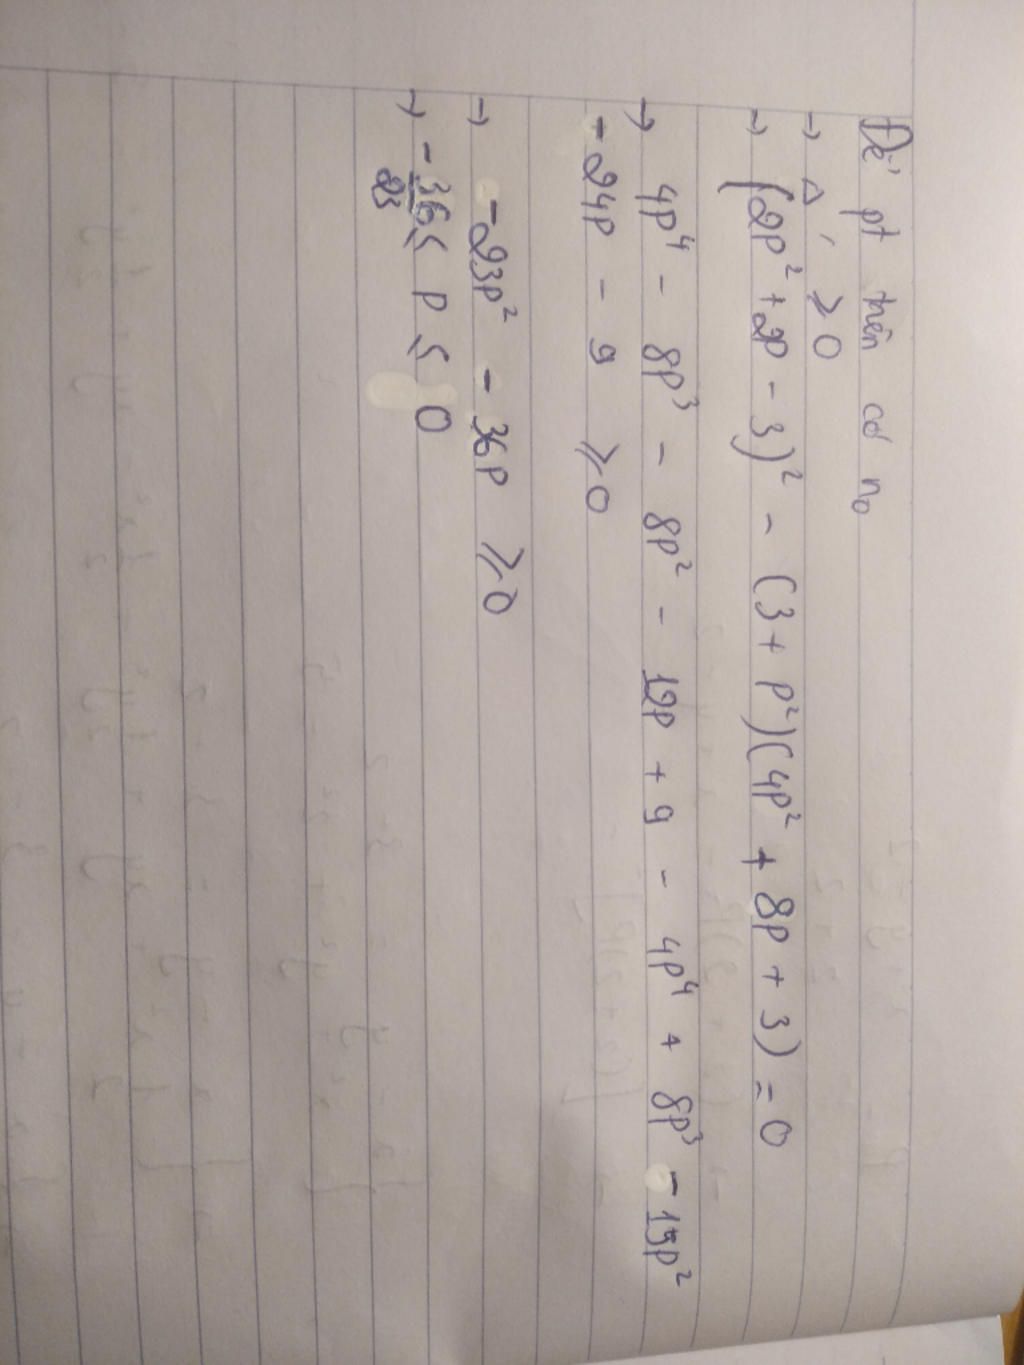 Để pt trên có n₀
→ Δ' ⩾ 0
→ (2P² + 2P - 3)² - (3 + P²)(4P² + 8P + 3) = 0
→ 4P⁴ - 8P³ - 8P² - 12P + 9 - 4P⁴ + 8P³ - 15P²
- 24P - 9 ⩾ 0
→ -23P² - 36P ⩾ 0
→ -36/23 ≤ P ≤ 0